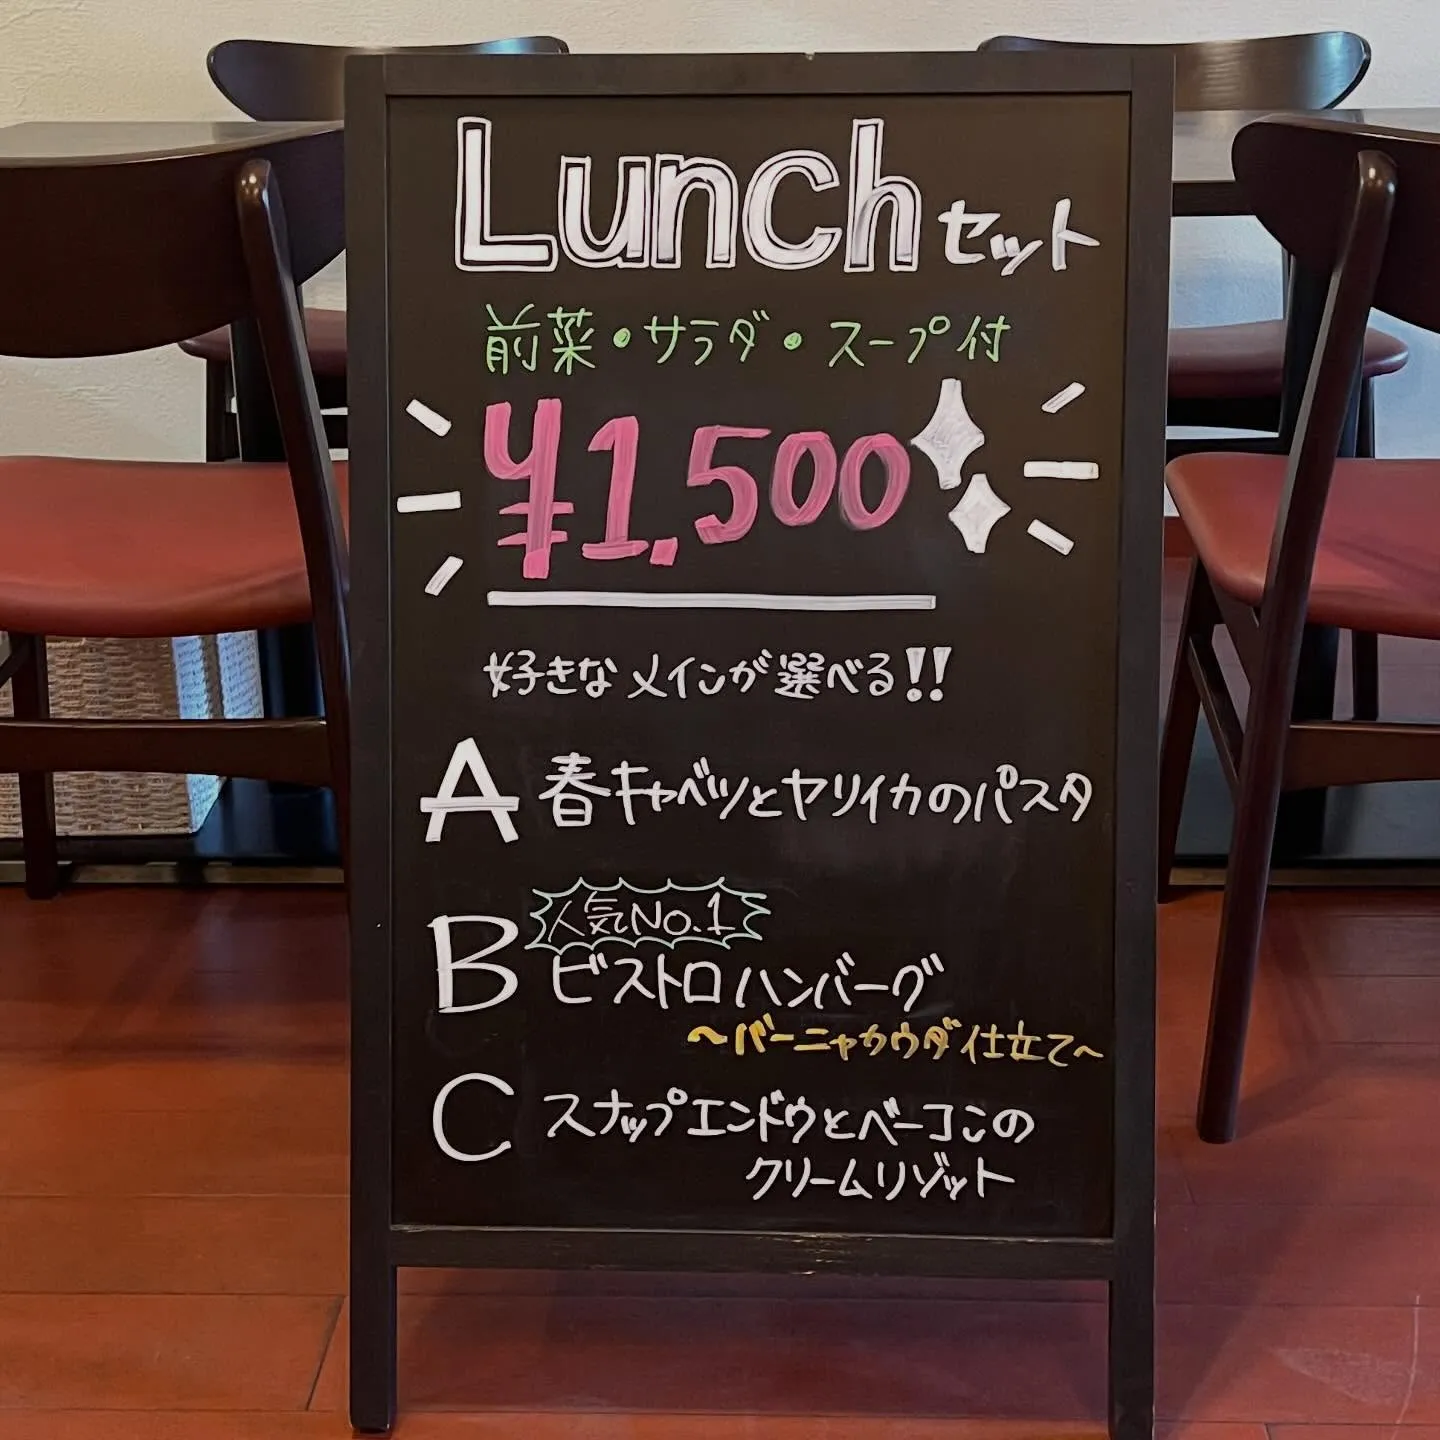 Lunchセット
前菜・サラダ・スープ付
¥1,500
好きなメインが選べる!!
A 春キャベツとヤリイカのパスタ
人気No.1
B ビストロハンバーグ
～バーニャカウダ仕立て～
C スナップエンドウとベーコンの
クリームリゾット